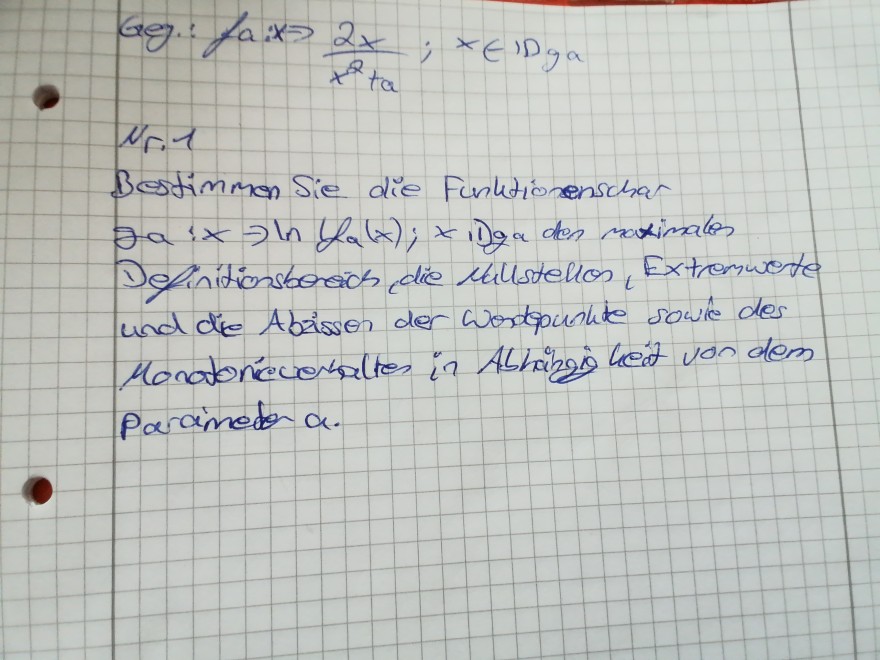 Geg.: fa:x⇒ 2x / x²+a ; x∈Dga
Nr. 1
Bestimmen Sie die Funktionenschar
ga : x ⇒ ln (fa(x); x Dga den maximalen
Definitionsbereich, die Nullstellen, Extremwerte
und die Abzissen der Wendepunkte sowie des
Monotonieverhalten in Abhängigkeit von dem
Parameter a.